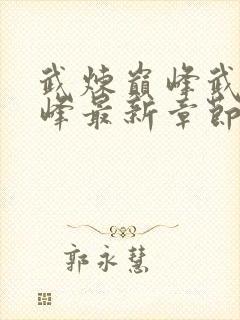 武煉巔峰武
峰最新章節
郭永慧